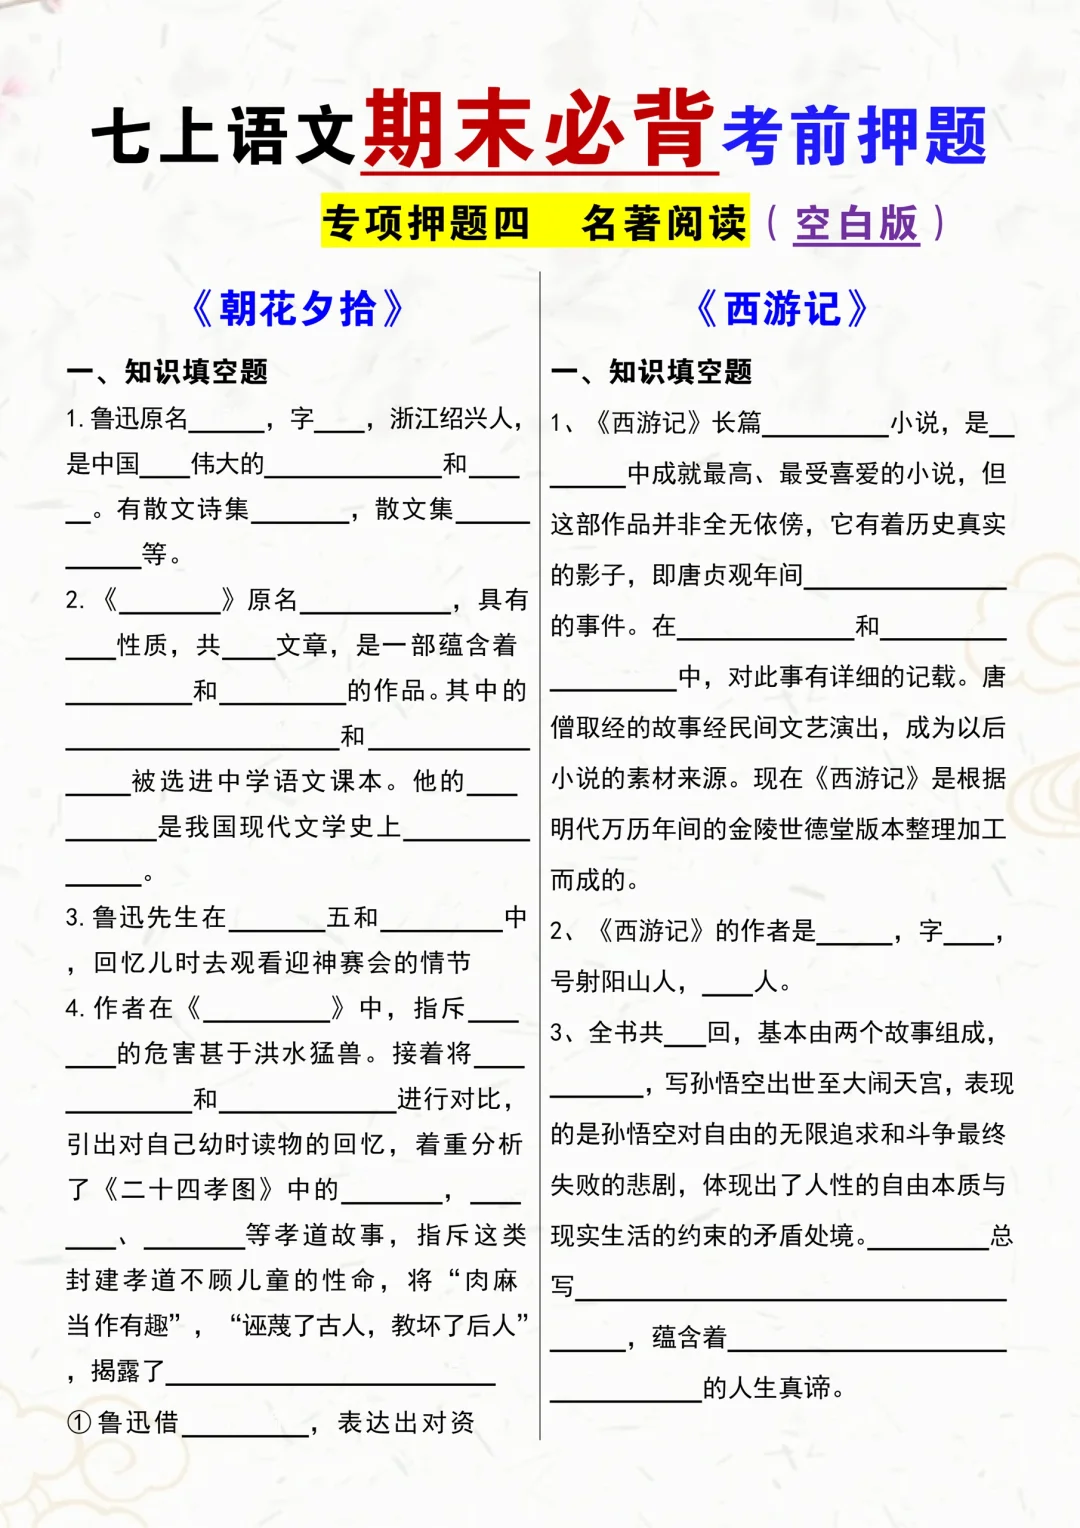 七上语文期末必背考前押题
专项押题四 名著阅读（空白版）
《朝花夕拾》
一、知识填空题
1.鲁迅原名______，字____，浙江绍兴人，
是中国____伟大的______________和____
__。有散文诗集________，散文集______
______等。
2.《________》原名____________，具有
____性质，共____文章，是一部蕴含着
__________和__________的作品。其中的
______________________和_____________
_____被选进中学语文课本。他的____
_______是我国现代文学史上__________
______。
3.鲁迅先生在________五和__________中
，回忆儿时去观看迎神赛会的情节
4.作者在《__________》中，指斥____
____的危害甚于洪水猛兽。接着将____
__________和______________进行对比，
引出对自己幼时读物的回忆，着重分析
了《二十四孝图》中的________，____
____、________等孝道故事，指斥这类
封建孝道不顾儿童的性命，将“肉麻
当作有趣”，“诬蔑了古人，教坏了后人”
，揭露了__________________________
①鲁迅借__________，表达出对资
《西游记》
一、知识填空题
1、《西游记》长篇__________小说，是__
______中成就最高、最受喜爱的小说，但
这部作品并非全无依傍，它有着历史真实
的影子，即唐贞观年间________________
的事件。在______________和__________
__________中，对此事有详细的记载。唐
僧取经的故事经民间文艺演出，成为以后
小说的素材来源。现在《西游记》是根据
明代万历年间的金陵世德堂版本整理加工
而成的。
2、《西游记》的作者是______，字____，
号射阳山人，____人。
3、全书共___回，基本由两个故事组成，
_______，写孙悟空出世至大闹天宫，表现
的是孙悟空对自由的无限追求和斗争最终
失败的悲剧，体现出了人性的自由本质与
现实生活的约束的矛盾处境。_________总
写__________________________________
______，蕴含着______________________
____________的人生真谛。